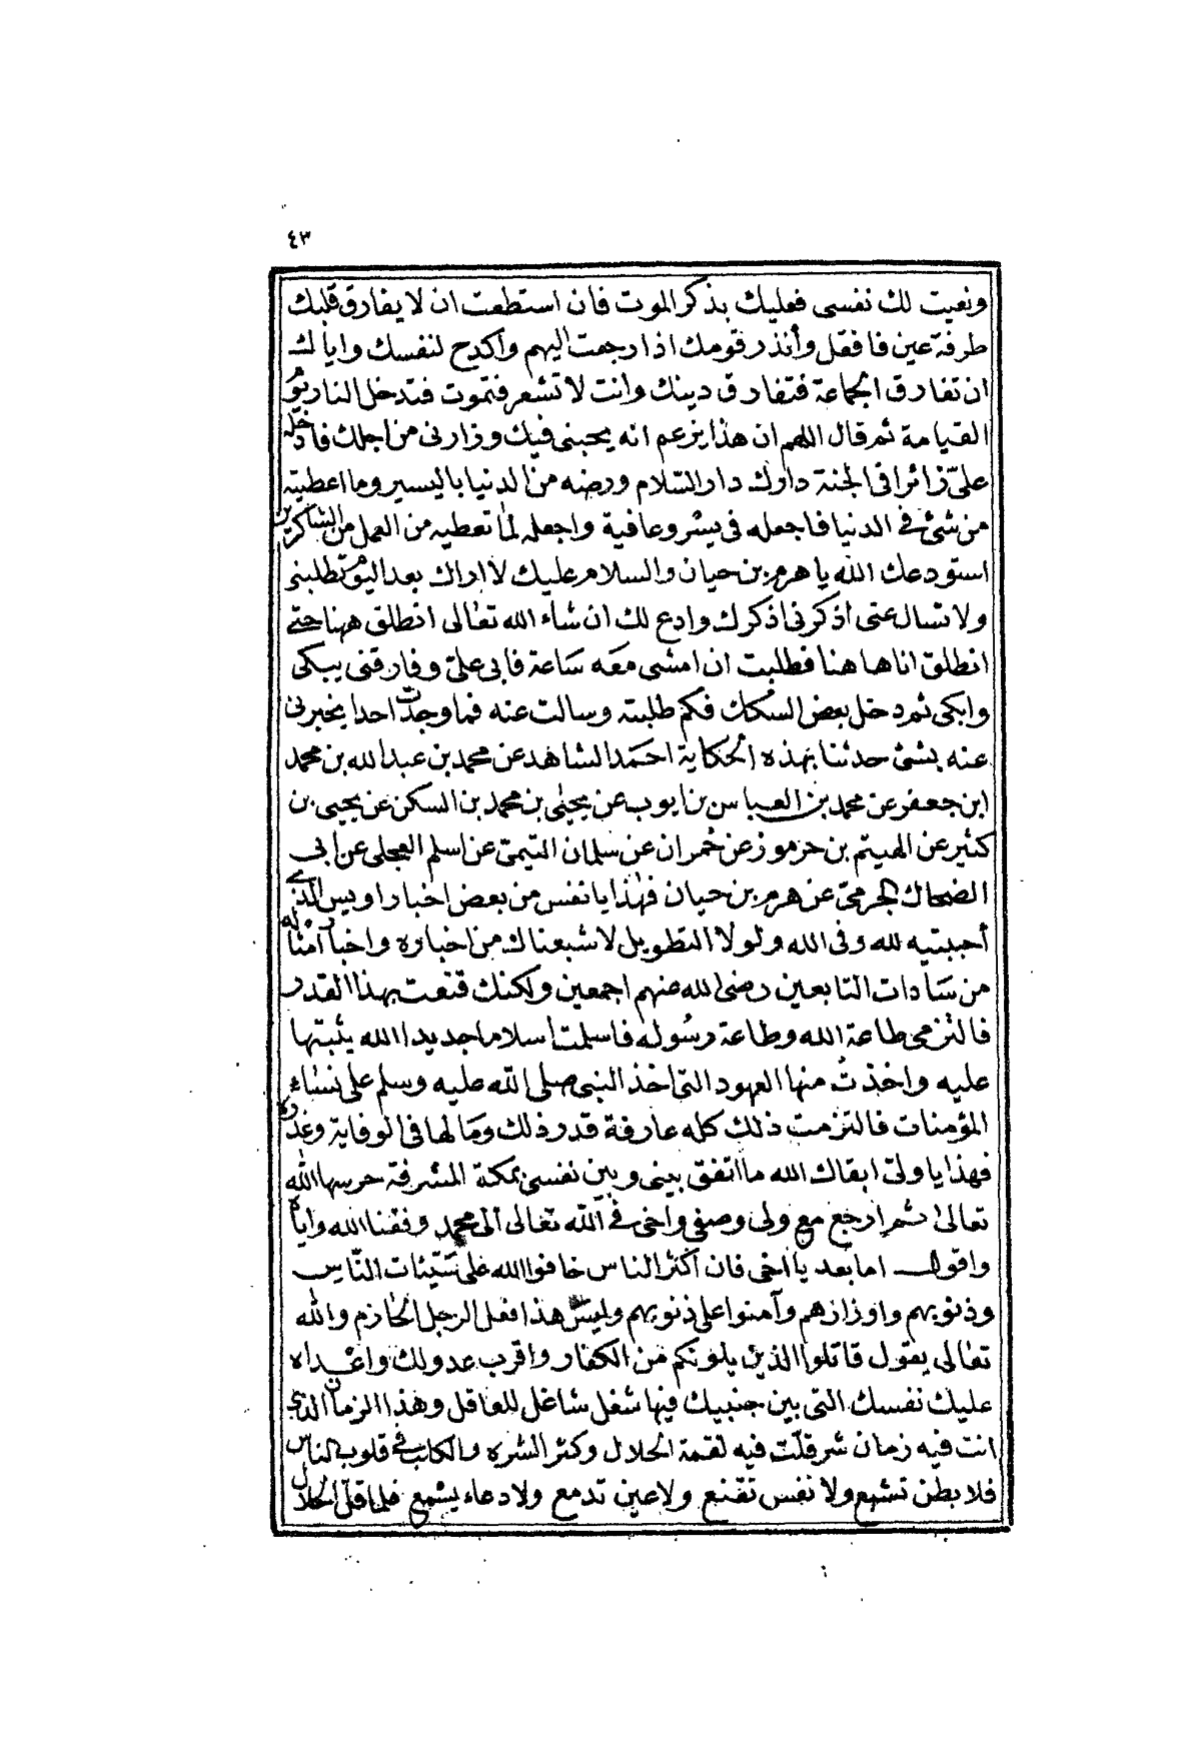 ٤٣
ونعيت لك نفسى فعليك بذكر الموت فان استطعت ان لا يفارق قلبك
طرفة عين فافعل وأنذر قومك اذا رجعت اليهم واكدح لنفسك واياك
ان تفارق الجماعة فتفارق دينك وانت لا تشعر فتموت فتدخل النار يوم
القيامة ثم قال اللهم ان هذا يزعم انه يحبنى فيك وزارنى من اجلك فادخله
علىّ زائرا فى الجنة دارك دار السّلام ورضه من الدنيا باليسير وما اعطيته
من شئ فى الدنيا فاجعله فى يسُر وعافية واجعله لما تعطيه من العمل من الشاكرين
استودعك الله يا هرم بن حيان والسلام عليك لا اراك بعد اليوم تطلبنى
ولا تسال عنى اذكرنى اذكرك وادع لك ان شاء الله تعالى انطلق ههنا حتى
انطلق انا هاهنا فطلبت ان امشى معَه سَاعة فابى علىّ وفارقنى يبكى
وابكى ثم دخل بعض السكك فكم طلبته وسالت عنه فما وجدت احدا يخبرنى
عنه بشئ حدثنا بهذه الحكاية احمَد الشاهد عن محمد بن عبد الله بن محمد
ابن جعفر عن محمد بن العباس بن ايوب عن يحيى بن محمد بن السكن عن يحيى بن
كثير عن الهيتم بن جرموز عن حُمران عن سلمان التيمىّ عن اسلم العجلى عن ابى
الضحاك الجرمىّ عن هرم بن حيان فهذا يا نفس من بعض اخبار اويس الذى
أحببتيه لله وفى الله ولولا التطويل لاشبعناك من اخباره واخبار امثاله
من سَادات التابعين رضى الله عنهم اجمعين ولكنك قنعت بهذا القدر
فالتزمى طاعة الله وطاعة رسُوله فاسلمت اسلاما جديدا الله يثبتها
عليه واخذتُ منها العهود التى اخذ النبى صلى الله عليه وسلم على نسَاء
المؤمنات فالتزمت ذلك كله عارفة قدر ذلك ومَا لها فى الوفاية وغدره
فهذا يا ولىّ ابقاك الله ما اتفق بينى وبين نفسى بمكة المشرفة حرسها الله
تعالى ثم ارجع مع ولى وصفى وأخى فى الله تعالى ابى محمد وفقنا الله واياه
واقول اما بعد يا اخى فان اكثر الناس خافوا الله على سَيّئات النّاس
وذنوبهم واوزارهم وآمنوا على ذنوبهم وليسَ هذا فعل الرجل الحازم والله
تعالى يقول قاتلوا الذين يلونكم من الكفار واقرب عدو لك واعداه
عليك نفسك التى بين جنبيك فيها شغل شاغل للعاقل وهذا الزمان الذى
انت فيه زمان شر قلّت فيه لقمة الحلال وكثر الشره والكلب فى قلوب الناس
فلا بطن تشبع ولا نفس تقنع ولا عين تدمع ولا دعاء يسمع فلما قلّ الحلال